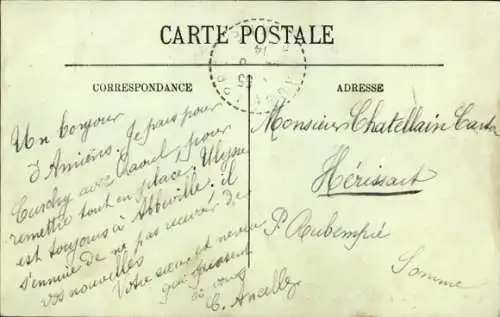 CARTE POSTALE
CORRESPONDANCE
ADRESSE
Un bonjour
d'Amiens. Je pars pour
Curchy avec Raoul, pour
remettre tout en place; Ulysse
est toujours à Abbeville; il
s'ennuie de ne pas recevoir de
vos nouvelles
Votre sœur et neveu
qui pensent
à vous
C. Ancelle
Monsieur Chatellain
Hérissart
Pr Rubempré
Somme